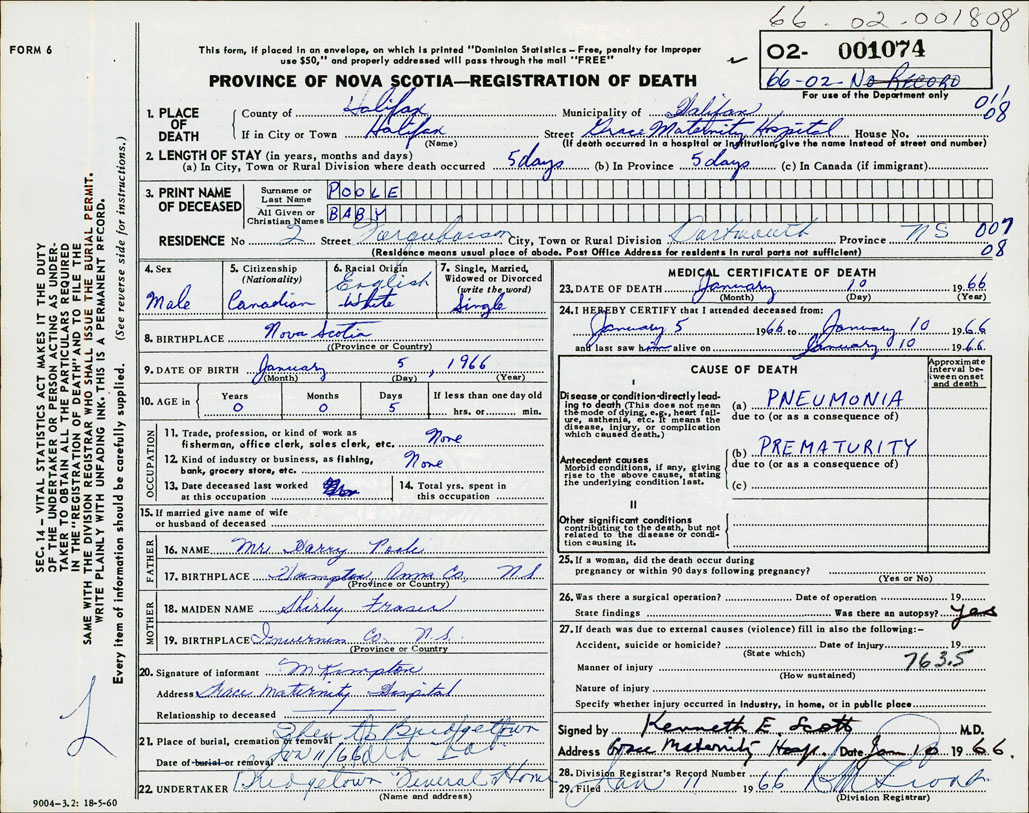 66-02-001808
FORM 6
This form, if placed in an envelope, on which is printed "Dominion Statistics – Free, penalty for improper
use $50," and properly addressed will pass through the mail "FREE"
02- 001074
66-02- No Record
For use of the Department only
PROVINCE OF NOVA SCOTIA—REGISTRATION OF DEATH
1. PLACE OF DEATH
County of Halifax Municipality of Halifax 011 08
If in City or Town Halifax Street Grace Maternity Hospital House No.
(Name) (If death occurred in a hospital or institution, give the name instead of street and number)
2. LENGTH OF STAY (in years, months and days)
(a) In City, Town or Rural Division where death occurred 5 days (b) In Province 5 days (c) In Canada (if immigrant)
3. PRINT NAME OF DECEASED
Surname or Last Name POOLE
All Given or Christian Names BABY
RESIDENCE No 2 Street Farquharson City, Town or Rural Division Dartmouth Province NS 007 08
(Residence means usual place of abode. Post Office Address for residents in rural parts not sufficient)
4. Sex Male
5. Citizenship (Nationality) Canadian
6. Racial Origin English White
7. Single, Married, Widowed or Divorced (write the word) Single
8. BIRTHPLACE Nova Scotia
((Province or Country)
9. DATE OF BIRTH January 5, 1966
(Month) (Day) (Year)
10. AGE in Years 0 Months 0 Days 5 If less than one day old hrs. or min.
OCCUPATION
11. Trade, profession, or kind of work as fisherman, office clerk, sales clerk, etc. None
12. Kind of industry or business, as fishing, bank, grocery store, etc. None
13. Date deceased last worked at this occupation
14. Total yrs. spent in this occupation
15. If married give name of wife or husband of deceased
FATHER
16. NAME Mr. Harry Poole
17. BIRTHPLACE Hampton Anna Co. NS
(Province or Country)
MOTHER
18. MAIDEN NAME Shirley Fraser
19. BIRTHPLACE Inverness Co. N.S.
(Province or Country)
20. Signature of informant M. Hampton
Address Grace Maternity Hospital
Relationship to deceased
21. Place of burial, cremation or removal Bridgetown
Date of burial or removal Jan 11/66
22. UNDERTAKER Bridgetown Funeral Home
(Name and address)
9004–3.2: 18-5-60
MEDICAL CERTIFICATE OF DEATH
23. DATE OF DEATH January 10 1966
(Month) (Day) (Year)
24. I HEREBY CERTIFY that I attended deceased from:
January 5 1966 to January 10 1966
and last saw him alive on January 10 1966
CAUSE OF DEATH
Approximate interval between onset and death
I
Disease or condition directly leading to death (This does not mean the mode of dying, e.g., heart failure, asthenia, etc. It means the disease, injury, or complication which caused death.)
(a) PNEUMONIA
due to (or as a consequence of)
Antecedent causes
Morbid conditions, if any, giving rise to the above cause, stating the underlying condition last.
(b) PREMATURITY
due to (or as a consequence of)
(c)
II
Other significant conditions contributing to the death, but not related to the disease or condition causing it.
25. If a woman, did the death occur during pregnancy or within 90 days following pregnancy?
(Yes or No)
26. Was there a surgical operation? Date of operation 19
State findings Was there an autopsy? yes
27. If death was due to external causes (violence) fill in also the following:–
Accident, suicide or homicide? Date of injury 19
(State which)
763.5
Manner of injury
(How sustained)
Nature of injury
Specify whether injury occurred in industry, in home, or in public place
Signed by Kenneth E. Scott M.D.
Address Grace Maternity Hosp. Date Jan 10 1966.
28. Division Registrar's Record Number
29. Filed Jan 11 1966
(Division Registrar)
SEC. 14 – VITAL STATISTICS ACT MAKES IT THE DUTY
OF THE UNDERTAKER OR PERSON ACTING AS UNDERTAKER TO OBTAIN ALL THE PARTICULARS REQUIRED
IN THE "REGISTRATION OF DEATH" AND TO FILE THE
SAME WITH THE DIVISION REGISTRAR WHO SHALL ISSUE THE BURIAL PERMIT.
WRITE PLAINLY WITH UNFADING INK. THIS IS A PERMANENT RECORD.
Every item of information should be carefully supplied. (See reverse side for instructions.)